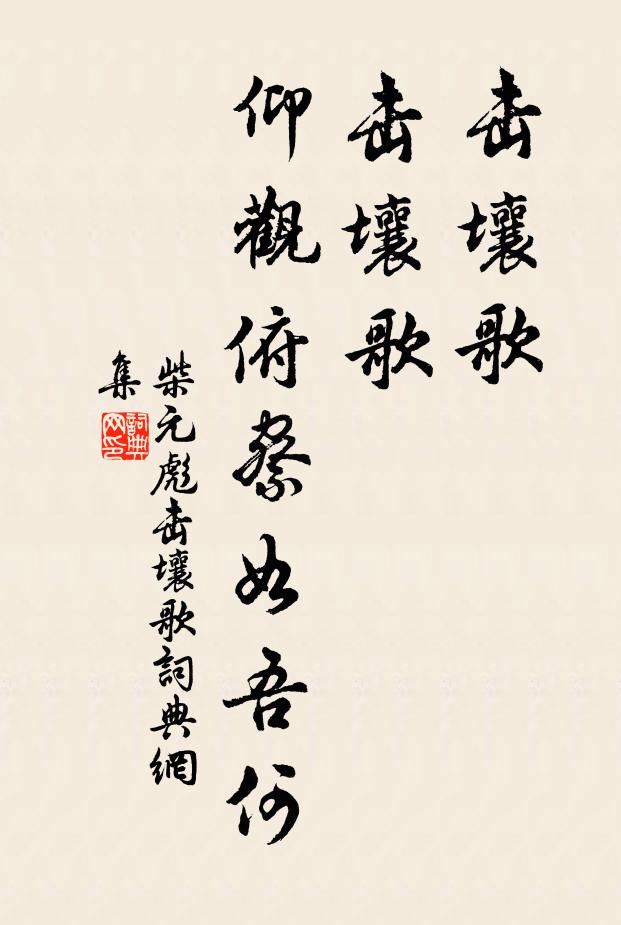 击壤歌
击壤歌
仰觀俯察如吾何
柴元彪击壤歌詞典網
集
詞典
网印